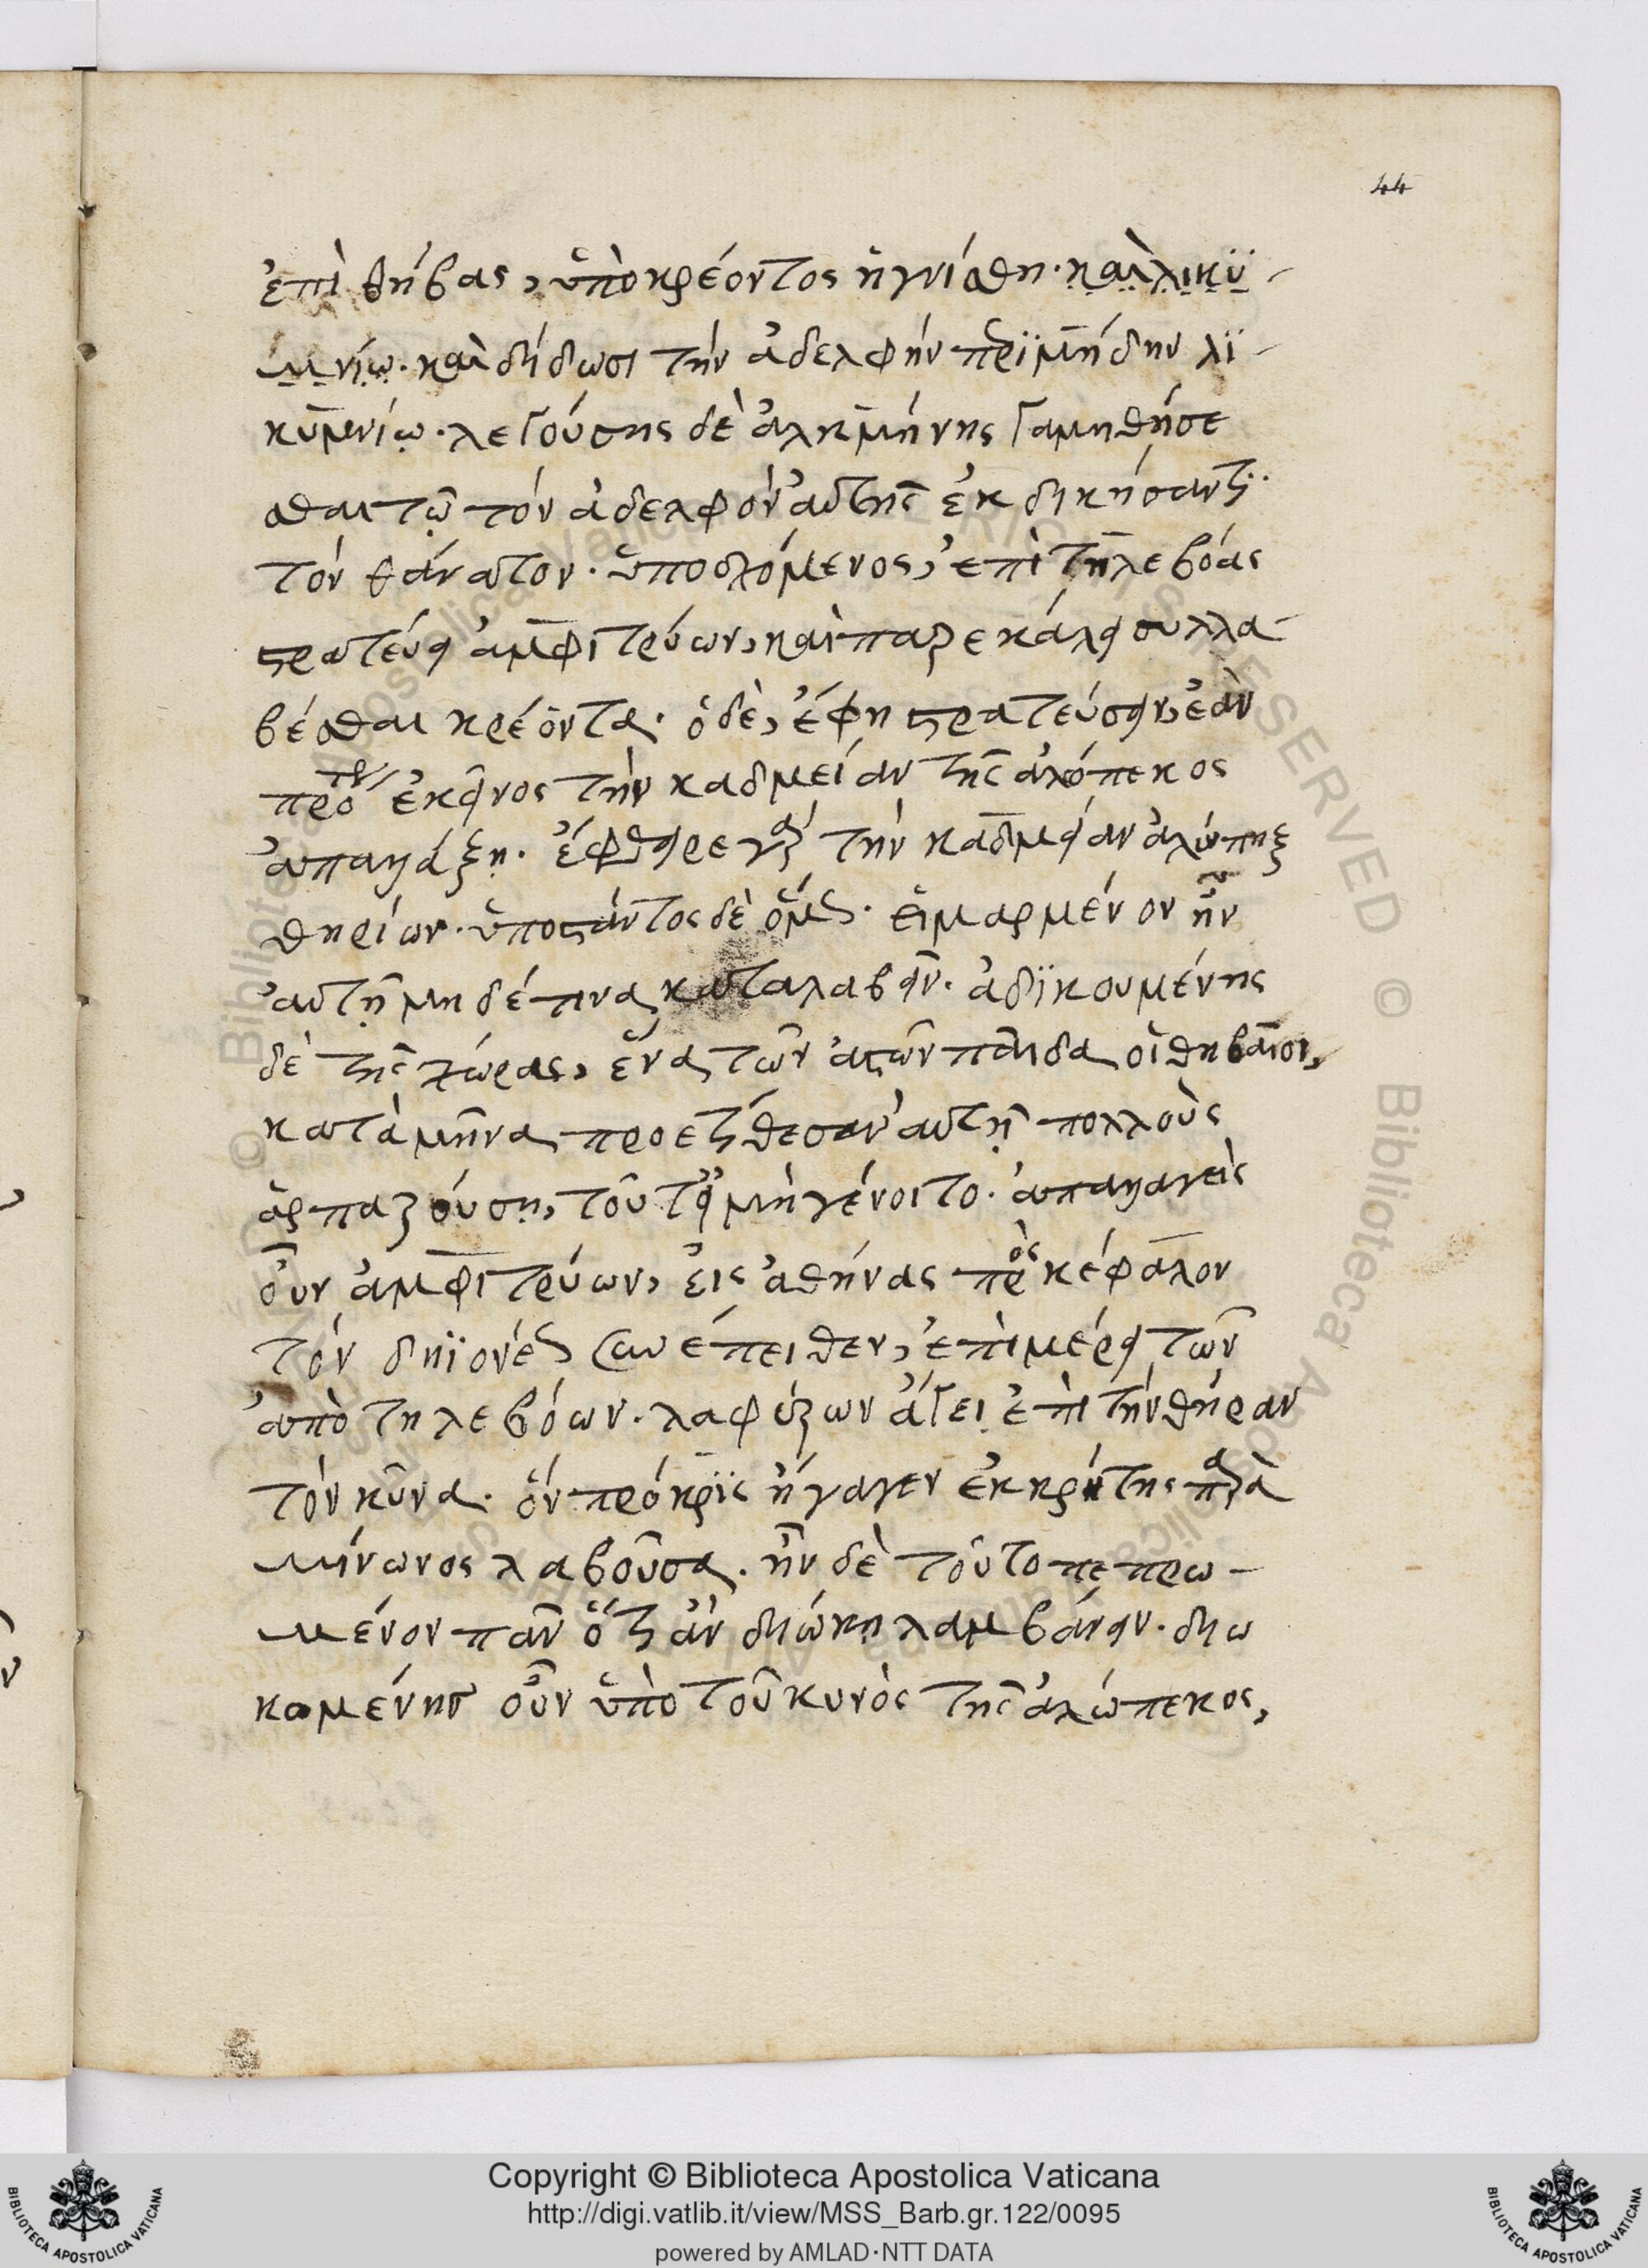 44
ἐπὶ θήβας, ὑπὸ κρέοντος ἡγνίσθη. καὶ λικϋ-
μνίῳ. καὶ δίδωσι τὴν ἀδελφὴν πρϊμήδην λϊ-
κυμνίῳ. λεγούσης δὲ ἀλκμήνης γαμηθήσε
σθαι τῷ τὸν ἀδελφὸν αὐτῆς ἐκδικήσαντι
τὸν θάνατον. ὑποσχόμενος, ἐπὶ τηλεβόας
στρατεύει ἀμφιτρύων, καὶ παρεκάλει συλλα-
βέσθαι κρέοντα. ὁ δὲ, ἔφη στρατεύσειν, ἐὰν
πρότερον ἐκεῖνος τὴν καδμείαν τῆς ἀλόπεκος
ἀπαλάξῃ. ἔφθειρε γὰρ τὴν καδμείαν ἀλώπηξ
θηρίων. ὑποστάντος δὲ ὅμως. εἱμαρμένον ἦν
αὐτὴν μηδέ τινα καταλαβεῖν. ἀδϊκουμένης
δὲ τῆς χώρας, ἕνα τῶν ἀστῶν παῖδα οἱ θηβαῖοι,
κατὰ μῆνα προετίθεσαν αὐτῇ πολλοὺς
ἁρπαζούσῃ, τοῦτ' εἰ μὴ γένοιτο. ἀπαλαγεὶς
οὖν ἀμφιτρύων, εἰς ἀθήνας πρὸς κέφαλον
τὸν δηϊονέως συνέπειθεν, ἐπὶ μέρει τῶν
ἀπὸ τηλεβόων. λαφύρων ἄγει ἐπὶ τὴν θήραν
τὸν κύνα. ὃν πρόκρϊς ἤγαγεν ἐκ κρήτης παρὰ
μίνωνος λαβοῦσα. ἦν δὲ τούτο πεπρω-
μένον πᾶν ὅτι ἂν διώκῃ λαμβάνειν. διω
κομένης οὖν ὑπὸ τοῦ κυνὸς τῆς ἀλώπεκος,
Copyright © Biblioteca Apostolica Vaticana
http://digi.vatlib.it/view/MSS_Barb.gr.122/0095
powered by AMLAD·NTT DATA
BIBLIOTECA APOSTOLICA VATICANA
BIBLIOTECA APOSTOLICA VATICANA